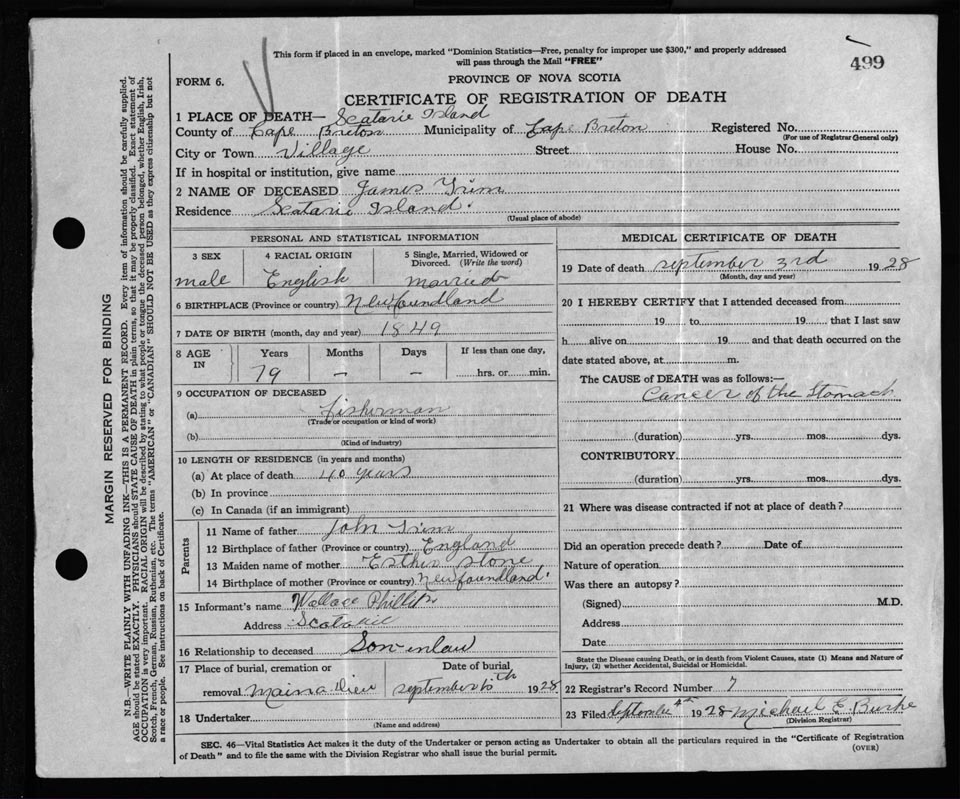 This form if placed in an envelope, marked "Dominion Statistics—Free, penalty for improper use $300," and properly addressed
will pass through the Mail "FREE"
499
FORM 6.
PROVINCE OF NOVA SCOTIA
CERTIFICATE OF REGISTRATION OF DEATH
1 PLACE OF DEATH— Scatarie Island
County of Cape Breton Municipality of Cape Breton Registered No.
(For use of Registrar General only)
City or Town Village Street House No.
If in hospital or institution, give name
2 NAME OF DECEASED James Trim
Residence Scatarie Island.
(Usual place of abode)
PERSONAL AND STATISTICAL INFORMATION
3 SEX 4 RACIAL ORIGIN 5 Single, Married, Widowed or
Divorced. (Write the word)
male English married
6 BIRTHPLACE (Province or country) Newfoundland
7 DATE OF BIRTH (month, day and year) 1849
8 AGE IN Years Months Days If less than one day,
79 – – hrs. or min.
9 OCCUPATION OF DECEASED
(a) fisherman
(Trade or occupation or kind of work)
(b)
(Kind of industry)
10 LENGTH OF RESIDENCE (in years and months)
(a) At place of death 40 years
(b) In province
(c) In Canada (if an immigrant)
Parents
11 Name of father John Trim
12 Birthplace of father (Province or country) England
13 Maiden name of mother Esther Stone
14 Birthplace of mother (Province or country) Newfoundland.
15 Informant's name Wallace Phillips
Address Scatarie
16 Relationship to deceased Son in law
17 Place of burial, cremation or Date of burial
removal Maina Dieu september 6th 1928
18 Undertaker
(Name and address)
MEDICAL CERTIFICATE OF DEATH
19 Date of death september 3rd 1928
(Month, day and year)
20 I HEREBY CERTIFY that I attended deceased from
19 to 19 that I last saw
h alive on 19 and that death occurred on the
date stated above, at m.
The CAUSE of DEATH was as follows:—
Cancer of the Stomach
(duration) yrs. mos. dys.
CONTRIBUTORY
(duration) yrs. mos. dys.
21 Where was disease contracted if not at place of death?
Did an operation precede death? Date of
Nature of operation
Was there an autopsy?
(Signed) M.D.
Address
Date
State the Disease causing Death, or in death from Violent Causes, state (1) Means and Nature of
Injury, (2) whether Accidental, Suicidal or Homicidal.
22 Registrar's Record Number 7
23 Filed September 4th 1928 Michael E. Burke
(Division Registrar)
SEC. 46—Vital Statistics Act makes it the duty of the Undertaker or person acting as Undertaker to obtain all the particulars required in the "Certificate of Registration
of Death" and to file the same with the Division Registrar who shall issue the burial permit.
(OVER)
MARGIN RESERVED FOR BINDING
N.B.—WRITE PLAINLY WITH UNFADING INK—THIS IS A PERMANENT RECORD. Every item of information should be carefully supplied.
AGE should be stated EXACTLY. PHYSICIANS should STATE CAUSE OF DEATH in plain terms, so that it may be properly classified. Exact statement of
OCCUPATION is very important. RACIAL ORIGIN will be described by stating to what people or tongue the deceased person belonged, whether English, Irish,
Scotch, French, German, Russian, Ruthenian, etc. The terms "AMERICAN" or "CANADIAN" SHOULD NOT BE USED as they express citizenship but not
a race or people. See instructions on back of Certificate.